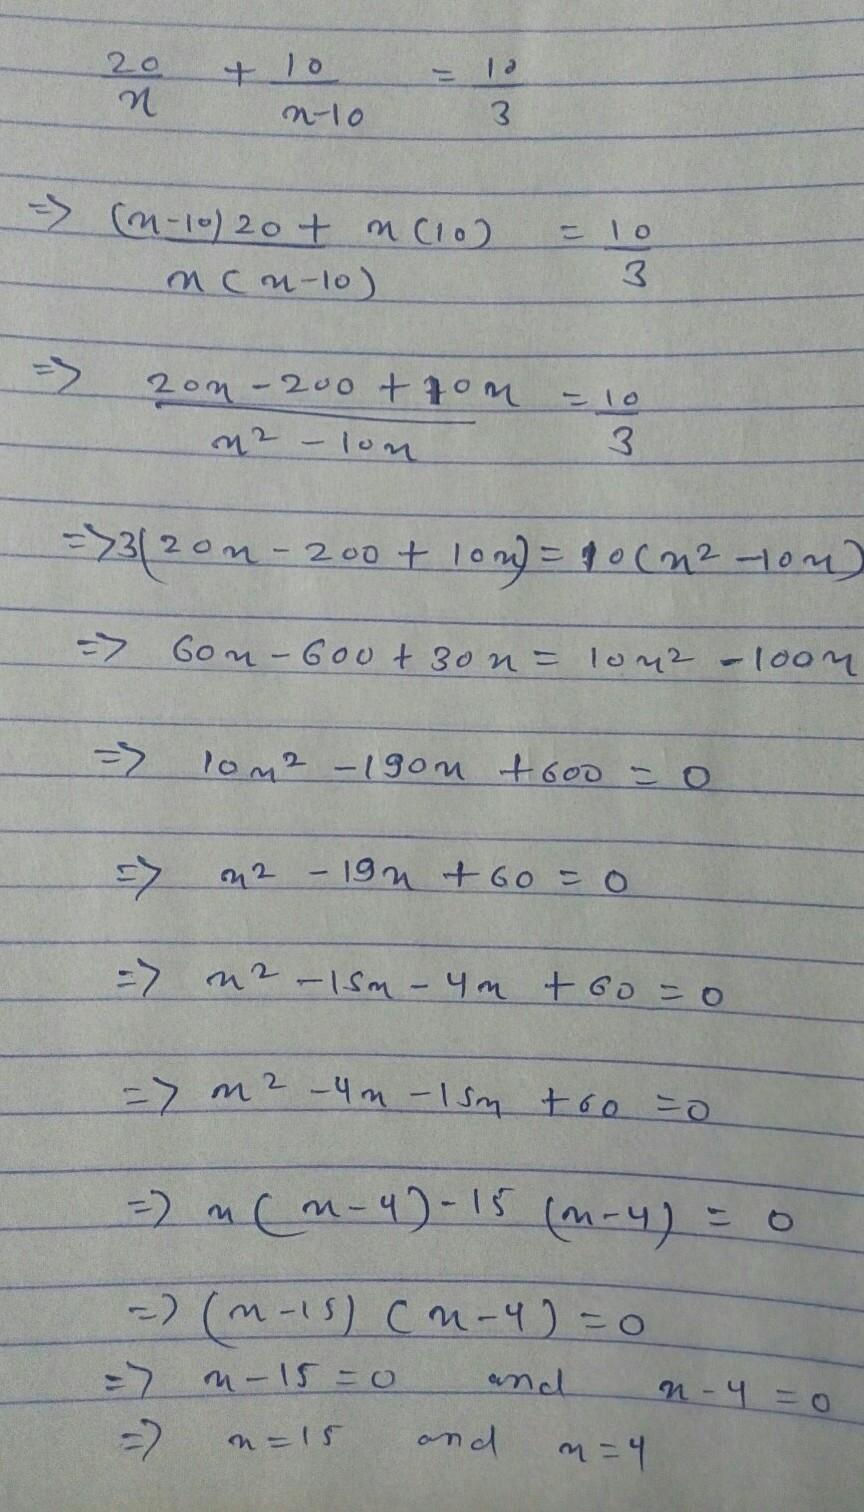 20/x + 10/x-10 = 10/3
=> (x-10)20 + x(10) / x(x-10) = 10/3
=> 20x - 200 + 10x / x² - 10x = 10/3
=> 3(20x - 200 + 10x) = 10(x² - 10x)
=> 60x - 600 + 30x = 10x² - 100x
=> 10x² - 190x + 600 = 0
=> x² - 19x + 60 = 0
=> x² - 15x - 4x + 60 = 0
=> x² - 4x - 15x + 60 = 0
=> x(x-4) - 15(x-4) = 0
=> (x-15)(x-4) = 0
=> x-15 = 0 and x-4 = 0
=> x = 15 and x = 4